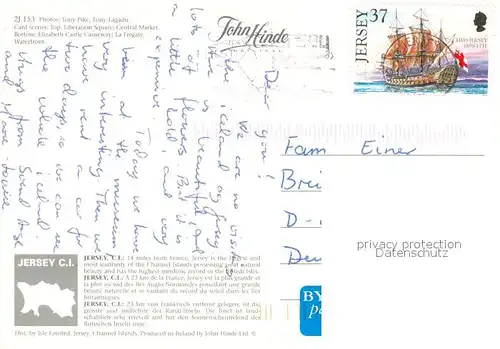 2J 153 Photos: Tony Pike, Tony Tagashi.
Card scenes: Top: Liberation Square; Central Market.
Bottom: Elizabeth Castle Causeway; La Fregate,
Watertown.
John Hinde
JERSEY
37
HMS JERSEY
Dear you!
We are now visiting
the iceland of Jersey
Here is beautiful and
lots of flowers. But it is
a little cold, and very
expensive. Today we have
been at the museum
interesting. Then we
have rent a car for
two days, so we can see
the whole iceland.
hugs from Svend Aage
and
Fam Einer
Brei
D-
Deu
privacy protection
Datenschutz
BY
pa
JERSEY C.I.
JERSEY, C.I.: 14 miles from France, Jersey is the largest and
most southerly of the Channel Islands possessing great natural
beauty and has the highest sunshine record in the British Isles.
JERSEY, C.I.: A 23 km de la France, Jersey est la plus grande et
la plus au sud des Iles Anglo-Normandes possédant une grande
beauté naturelle et se vantant du record du soleil dans les Iles
britanniques.
JERSEY, C.I.: 23 km von Frankreich entfernt gelegen, ist die
grösste und südlichste der Kanal-Inseln. Die Insel ist land-
schaftlich sehr reizvoll und hat den Sonnenscheinrekord der
Britischen Inseln inne.
Dist. by Isle Limited, Jersey, Channel Islands. Produced in Ireland by John Hinde Ltd. ©